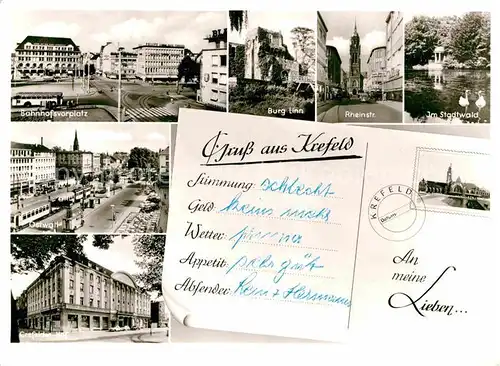 Bahnhofsvorplatz
Burg Linn
Rheinstr.
Im Stadtwald
Ostwall
Gruß aus Krefeld
Stimmung: schlecht
Geld: keins mehr
Wetter:
Appetit: sehr gut
Absender: Hein + Hermann
KREFELD
Datum
An
meine
Lieben...